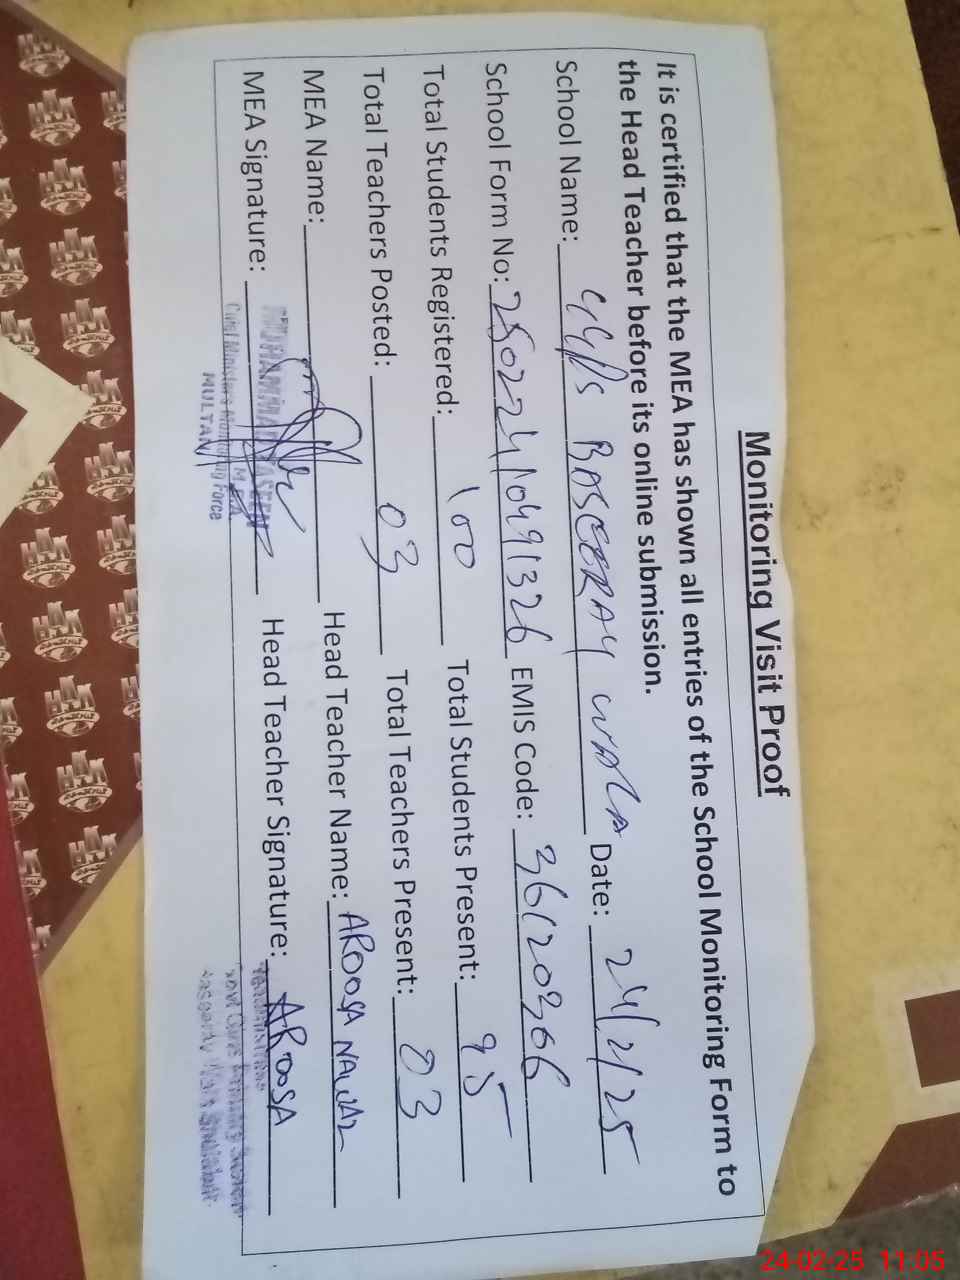 Monitoring Visit Proof
It is certified that the MEA has shown all entries of the School Monitoring Form to
the Head Teacher before its online submission.
School Name: GG/PS BASEERAY WALA Date: 24/2/25
School Form No: 250224/1049/326 EMIS Code: 36120366
Total Students Registered: 100 Total Students Present: 95
Total Teachers Posted: 03 Total Teachers Present: 03
MEA Name: Head Teacher Name: AROOSA NAWAZ
MEA Signature: Head Teacher Signature: AROOSA
MUHAMMAD M.E.A.
Chief Ministers Monitoring Force
MULTAN
Headmistress
Govt Girls Primary School
24-02-25 11:05